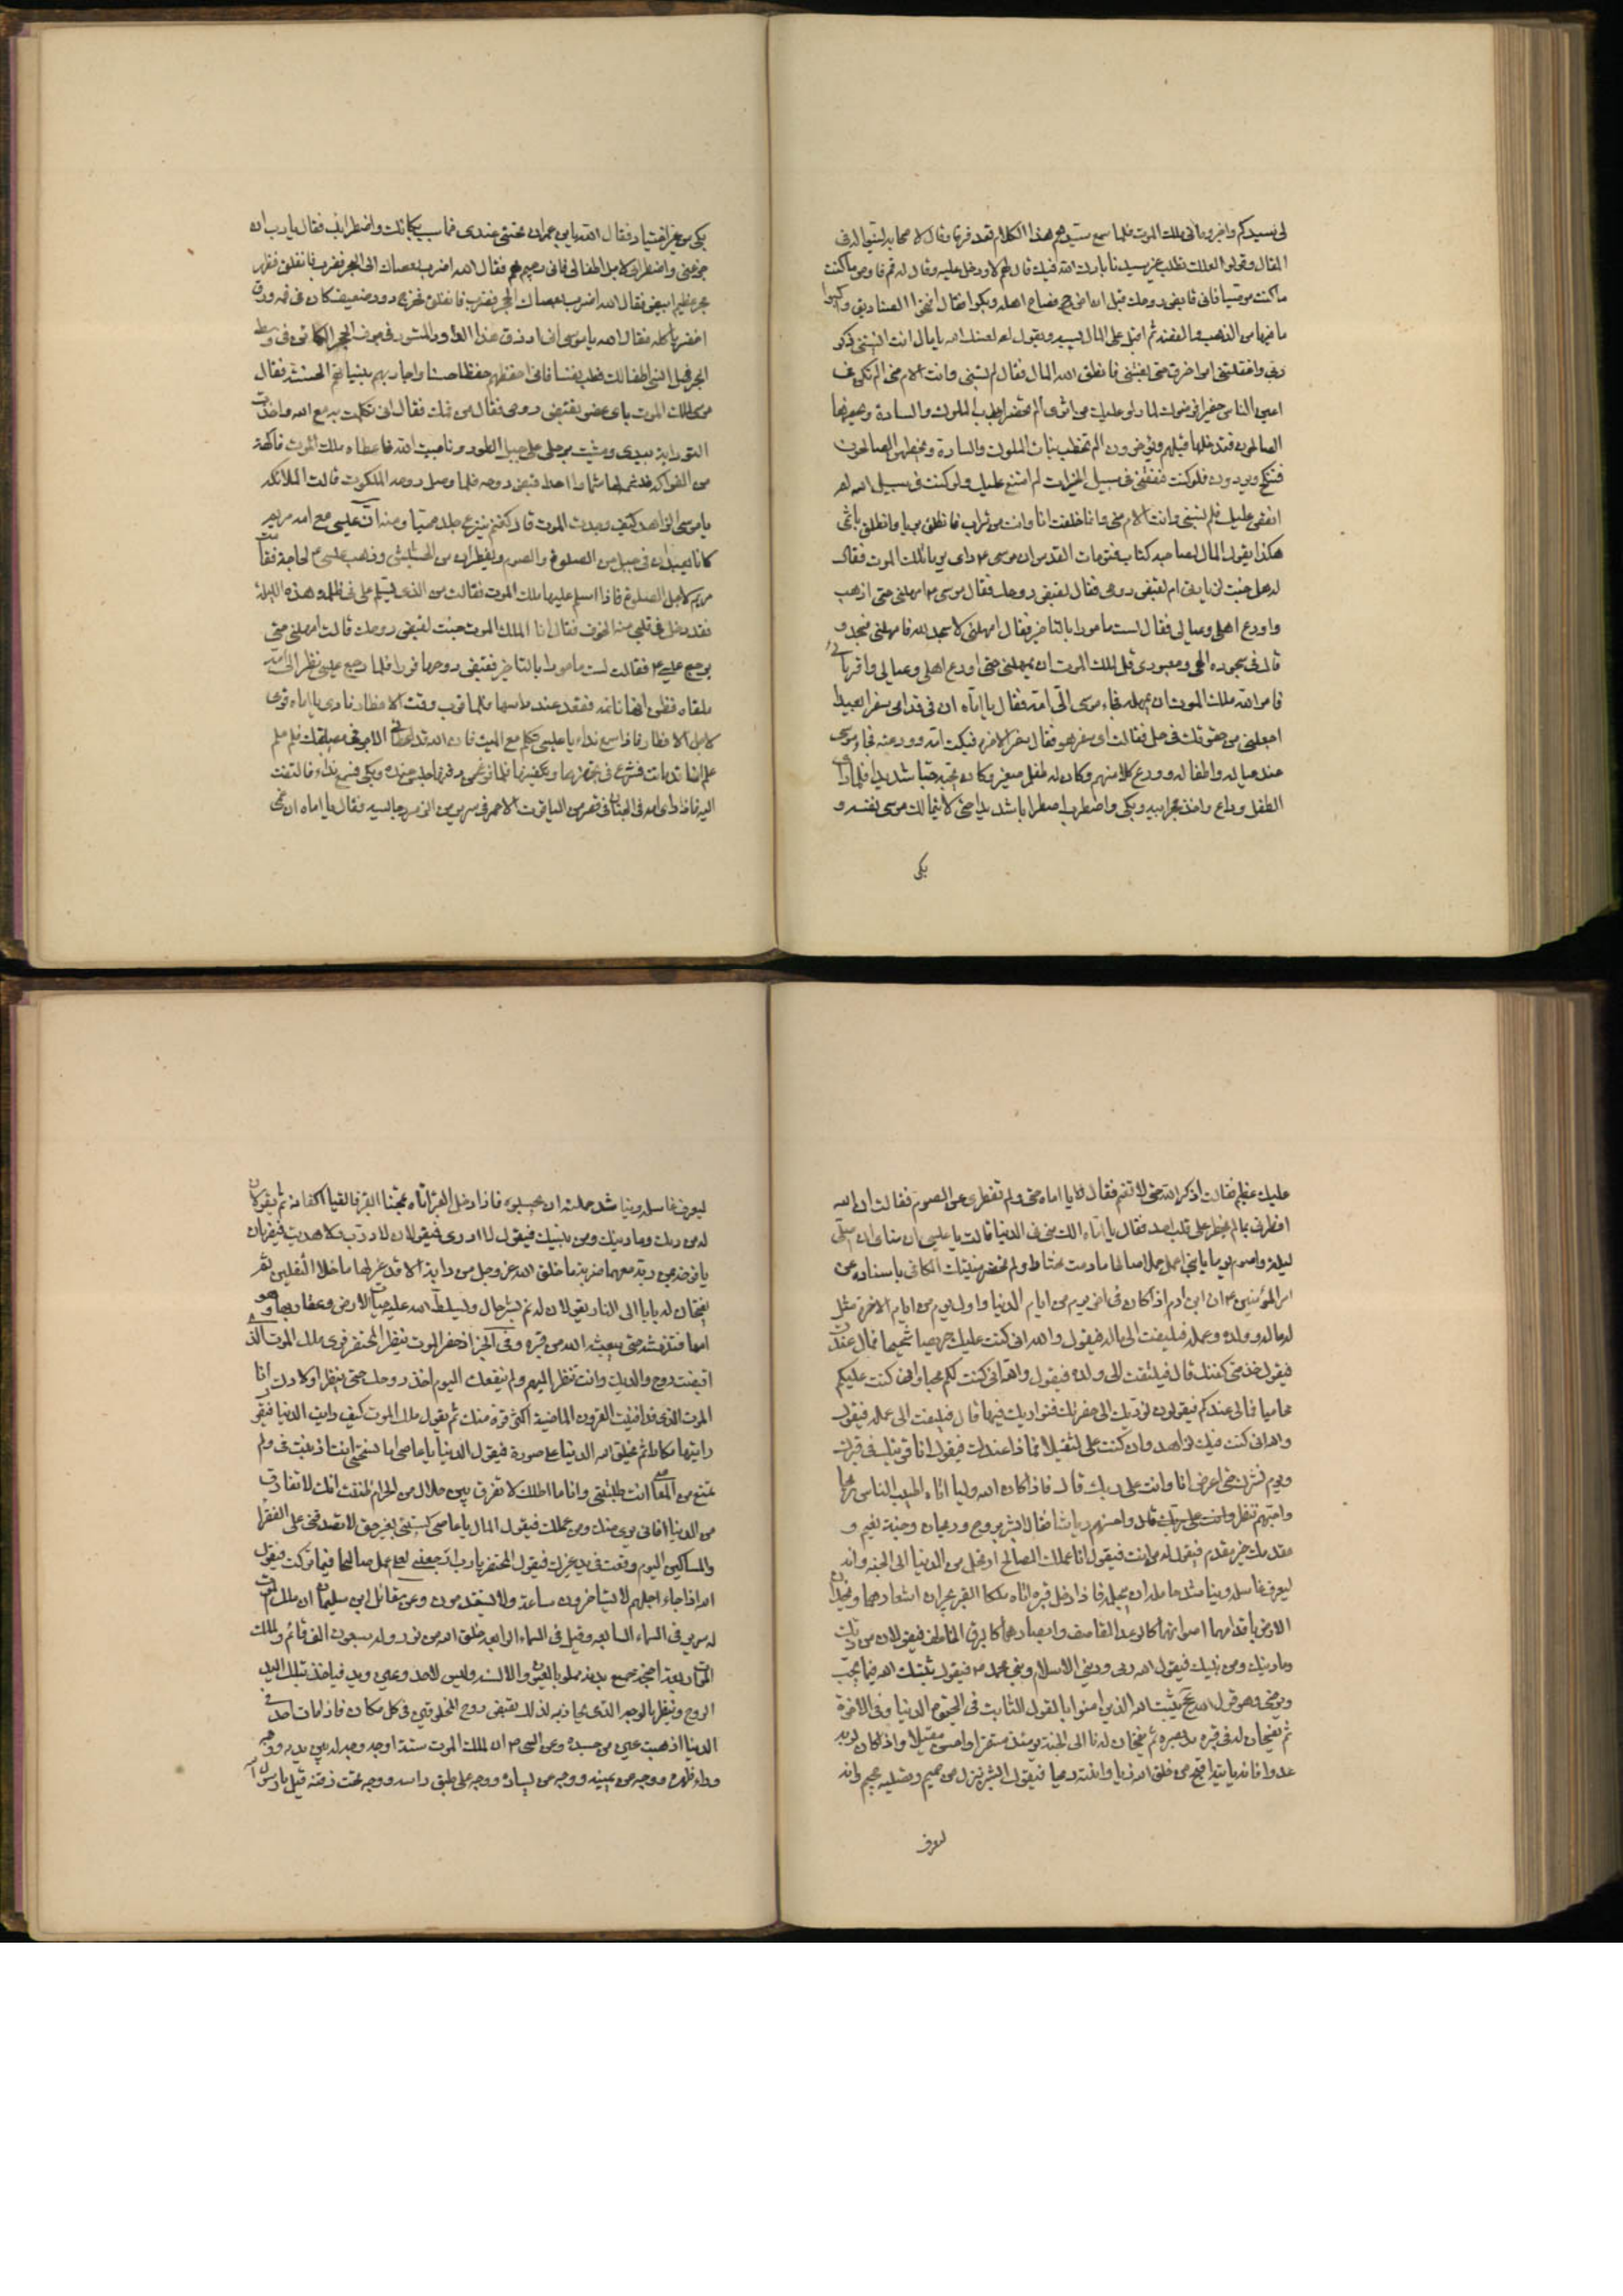 لى سيدكم واخبروه انى ملك الموت فلما سمع سيدهم هذا الكلام قعد فرقا وقال لاصحابه لينوا له فى
المقال وقولوا لعلك تطلب غير سيدنا بارك الله فيك قال لهم لا ودخل عليه وقال له قم فاوص ما كنت
ما كنت موصيا فانى قابض روحك قبل ان اخرج فصاح اهله وبكوا فقال افتحوا الصناديق واكتبوا
ما فيها من الذهب والفضة ثم اقبل على المال يسبه ويقول له لعنك الله يا مال انت انسيتنى ذكر
ربى واغفلتنى امر اخرتى حتى بغتنى فانطق الله المال فقال لم تسبنى وانت الام منى الم تكن فى
اعين الناس حقيرا فرفعوك لما راوا عليك من اثرى الم تحضر ابواب الملوك والسادة ويحضرها
الصالحون فتدخل قبلهم ويؤخرون الم تخطب بنات الملوك والسادة ويخطبهن الصالحون
فتنكح ويردون فلو كنت تنفقنى فى سبيل الخيرات لم امتنع عليك ولو كنت فى سبيل الله لم
انقص عليك فلم تسبنى وانت الام منى وانما خلقت انا وانت من تراب فانطلق بريا وانطلق باثمى
هكذا يقول المال لصاحبه كتاب فتوحات القدس ان موسى ع راى يوما ملك الموت فقال
له هل جئت لزيارتى ام لقبض روحى فقال لقبض روحك فقال موسى ع امهلنى حتى اذهب
واودع اهلى وعيالى فقال لست مامورا بالتاخير فقال امهلنى لاسجد لله فامهلنى فسجد و
قال فى سجوده الهى ومعبودى قل لملك الموت ان يمهلنى حتى اودع اهلى وعيالى واقربائى
فامر الله ملك الموت ان يمهله فجاء موسى الى امه فقال يا اماه ان فى قدامى سفرا بعيدا
اجعلنى من حقوقك فى حل فقالت اى سفر هو فقال سفر الاخرة فبكت امه وودعته فجاء موسى
عند عياله واطفاله وودع كلا منهم وكان له طفل صغير وكان يحبه حبا شديدا فلما راى
الطفل وداع واخذ بجر ابيه وبكى واضطرب اضطرابا شديدا حتى لا يتمالك موسى نفسه و
بكى
بكى من غير اختيار فقال الله يا بن عمران تجئنى عندى فما سبب بكائك واضطرابك فقال يا رب ان
جزعى واضطرابى لاجل اطفالى فانى رحيم بهم فقال الله اضرب بعصاك الى البحر فضرب فانفلق فظهر
حجر عظيم ابيض فقال الله اضرب بعصاك الحجر فضرب فانفلق فخرج دود ضعيف كان فى فمه ورق
اخضر ياكله فقال الله يا موسى انا ارزق هذا الدود المستور فى جوف الحجر الكائن فى وسط
البحر قبل انسى اطفالك فطب نفسا فانى احفظهم حفظا حسنا
موسى لملك الموت باى عضو تقبض روحى فقال من فمك فقال انى تكلمت به مع الله واخذت
التورية بيدى ومشيت برجلى على جبل الطور وناجيت الله فاعطاه ملك الموت فاكهة
من الفواكه فشمها فقبض روحه فلما وصل روحه الملكوت قالت الملائكة
يا موسى كيف وجدت الموت قال كغنم ينزع جلده حيا ومنها ان عيسى مع امه مريم
كانا يعبدان فى جبل من الصلوة والصوم ويفطران من الحشيش وذهب عيسى ع لحاجة فقامت
مريم لاجل الصلوة فاذا سلم عليها ملك الموت فقالت من الذى يسلم على فى ظلمة هذه الليلة
فقد دخل فى قلبى منه الخوف فقال انا الملك الموت جئت لقبض روحك قالت امهلنى حتى
يرجع عيسى ع فقال لست مامورا بالتاخير فقبض روحها فورا فلما رجع عيسى نظر الى امه
ملقاه فظن انها نائمة فقعد عند راسها وكلما قرب وقت الافطار نادى يا اماه قومى
لاجل الافطار فاذا سمع نداء يا عيسى تكلم مع الميت
علم انها قد ماتت فشرع فى تجهيزها وتكفينها فلما فرغ من دفنها جلس عنده وبكى فسمع نداء فالتفت
اليه فاذا راى امه فى الجنان فى قصر من الياقوت الاحمر فى سرير من الزمرد جالسة فقال يا اماه ان غمى
عليك عظيم فقالت اذكر الله حتى لا تغتم فقال لا يا اماه متى ولم تفطرى عن الصوم فقالت ان الله
افطرنى بما لم يخطر على قلب احد فقال يا اماه الك منى فى الدنيا قالت يا عيسى ان مناى ان اصلى
ليلة واصوم يوما يا بنى اعمل عملا صالحا ما دمت الكافى باسناده عن
امير المؤمنين ع ان ابن ادم اذا كان فى اخر يوم من ايام الدنيا واول يوم من ايام الاخرة مثل
له ماله وولده وعمله فيلتفت الى ماله فيقول والله انى كنت عليك حريصا شحيحا فمالى عندك
فيقول خذ منى كفنك قال فيلتفت الى ولده فيقول والله انى كنت لكم محبا وانى كنت عليكم
محاميا فما لى عندكم فيقولون نؤديك الى حفرتك فنواريك فيها قال فيلتفت الى عمله فيقول
والله انى كنت فيك لزاهد وان كنت على لثقيلا فما ذا عندك فيقول انا قرينك فى قبرك
ويوم نشرك حتى اعرض انا وانت على ربك قال فاذا كان لله وليا اتاه اطيب الناس ريحا
واحسنهم منظرا واحسنهم رياشا فقال ابشر بروح وريحان وجنة نعيم و
مقدمك خير مقدم فيقول له من انت فيقول انا عملك الصالح ارتحل من الدنيا الى الجنة وانه
ليعرف غاسله ويناشد حامله ان يعجله فاذا دخل قبره اتاه ملكا القبر يجران اشعارهما ويخدان
الارض باقدامهما اصواتهما كالرعد القاصف وابصارهما كالبرق الخاطف فيقولان من ربك
وما دينك ومن نبيك فيقول الله ربى ودينى الاسلام ونبى محمد ص فيقول ثبتك الله فيما تحب
وترضى وهو قول الله عج يثبت الله الذين امنوا بالقول الثابت فى الحيوة الدنيا وفى الاخرة
ثم يفسحان له فى قبره مد بصره ثم يفتحان له بابا الى الجنة يومئذ مستقرا واحسن مقيلا واذا كان لربه
عدوا فانه ياتيه اقبح من خلق الله زيا وانتنه ريحا فيقول ابشر بنزل من حميم وتصلية جحيم وانه
ليعرف
ليعرف غاسله ويناشد حملته ان يحبسوه فاذا دخل القبر اتاه ممتحنا القبر فالقيا اكفانه ثم يقولان
له من ربك وما دينك ومن نبيك فيقول لا ادرى فيقولان لا دريت ولا هديت فيضربان
يافوخه بمرزبة معهما ضربة ما خلق الله عز وجل من دابة الا تذعر لها ما خلا الثقلين ثم
يفتحان له بابا الى النار يقولان له نم بشر حال ويسلط الله عليه حيات الارض وعقاربها وهو
امها فتنهشه حتى يبعثه الله من قبره وفى الخبر اذ حضر الموت ينظر المحتضر فيرى ملك الموت الذى
قبضت روح والديك وانت تنظر اليهم ولم ينفعك اليوم اخذ روحك حتى ينظر اولادك انا
الموت الذى قد افنيت القرون الماضية اكثر قوة منك ثم يقول ملك الموت كيف رايت الدنيا فيقول
رايتها مكارة ثم يخلق الله الدنيا على صورة فيقول الدنيا يا عاصى اما تستحيى انت اذنبت فى ولم
تمتنع من المعاصى انت طلبتنى وانا ما اطلبك لا تفرق بين حلال من الحرام ظننت انك لا تفارق
من الدنيا انا برىء منك ومن عملك فيقول المال يا عاصى كسبتنى بغير حق لا تصدقنى على الفقرا
والمساكين اليوم وقعت فى يد غيرك فيقول المحتضر يا رب ارجعنى لعلى اعمل صالحا فيما تركت فيقول
الله اذا جاء اجلهم لا يستاخرون ساعة ولا يستقدمون وعن مقاتل ابن سليمان ان ملك الموت
له سرير فى السماء السابعة وقيل فى السماء الرابعة خلق الله من نور وله سبعون الف قائم ولملك
وليس لاحد وعين ويد فياخذ بتلك اليد
الروح وينظر بالوجه الذى يحاذيه لذلك يقبض روح المخلوقين فى كل مكان فاذا مات احد فى
الدنيا اذهبت عين من جسده وعن النبى ص ان لملك الموت ستة اوجه وجه له بين يديه ووجه
وراء ظهره ووجه عن يمينه ووجه عن يساره ووجه على طبق راسه ووجه تحت ذقنه قيل يا رسول الله